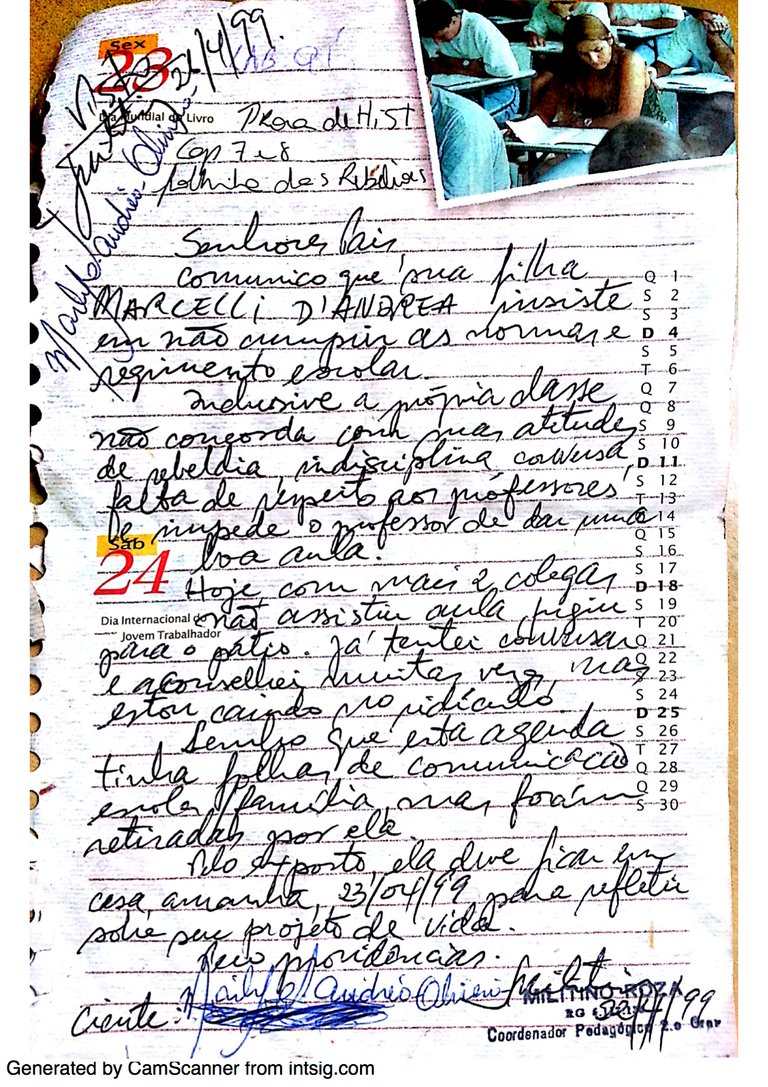 Sex
23
26/4/99.
Dia Mundial do Livro
Prova de Hist
Cap 7 e 8
folhinha das Rebeliões
Senhores Pais
Comunico que sua filha
MARCELLI D'ANDREA insiste
em não cumprir as normas e
regimento escolar.
Inclusive a própria classe
não concorda com suas atitudes
de rebeldia, indisciplina, conversa,
falta de respeito aos professores,
e impede o professor de dar uma
boa aula.
Sáb
24
Dia Internacional do
Jovem Trabalhador
Hoje, com mais 2 colegas
não assistiu aula, fugiu
para o pátio. Já tentei conversar
e aconselhei muitas vezes, mas
estou caindo no ridículo.
Lembro que esta agenda
tinha folhas de comunicação
escola/família, mas foram
retiradas por ela.
Pelo exposto, ela deve ficar em
casa, amanhã, 23/04/99 para refletir
sobre seu projeto de vida.
Peço providências.
Ciente:
MILITINO ROZA
RG
22/4/99
Coordenador Pedagógico 2.o Grau
Q 1
S 2
S 3
D 4
S 5
T 6
Q 7
Q 8
S 9
S 10
D 11
S 12
T 13
Q 14
Q 15
S 16
S 17
D 18
S 19
T 20
Q 21
Q 22
S 23
S 24
D 25
S 26
T 27
Q 28
Q 29
S 30
Generated by CamScanner from intsig.com